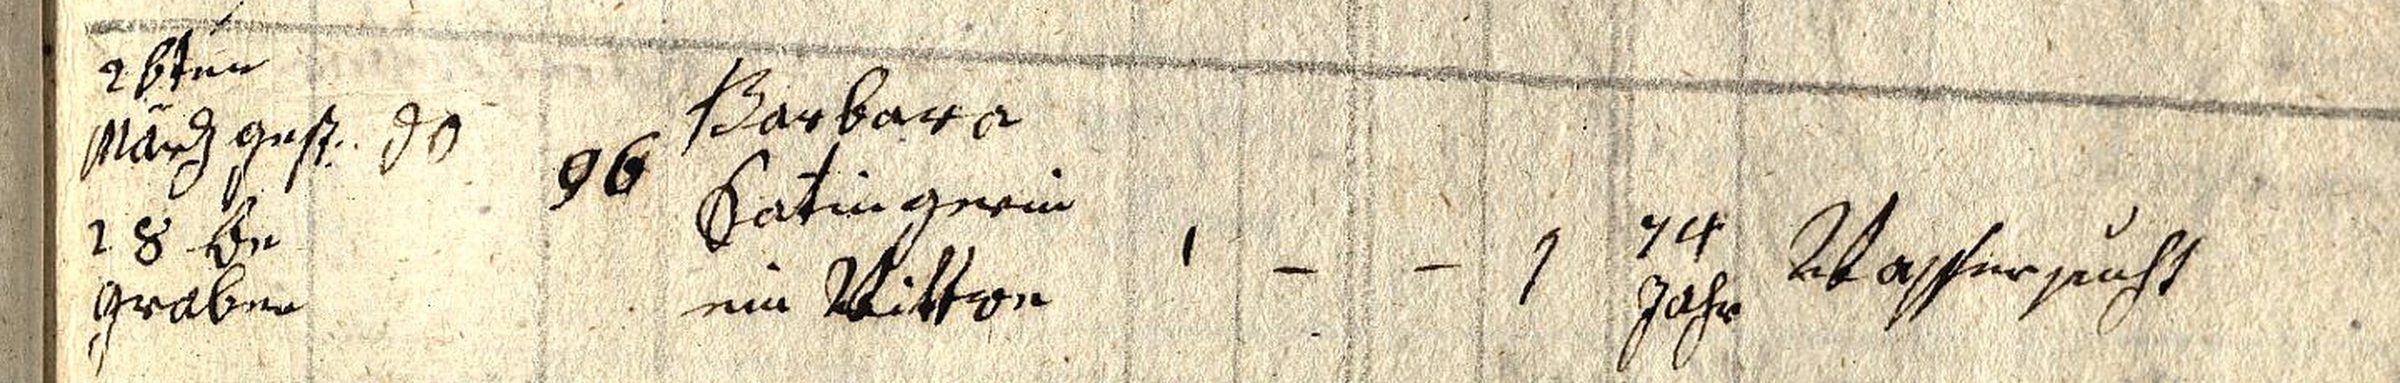 26ten
März gest. do
28 be
graben
96
Barbara
Hatingerin
ein Wittwe
1 – – 1
74
Jahr
Wassersucht